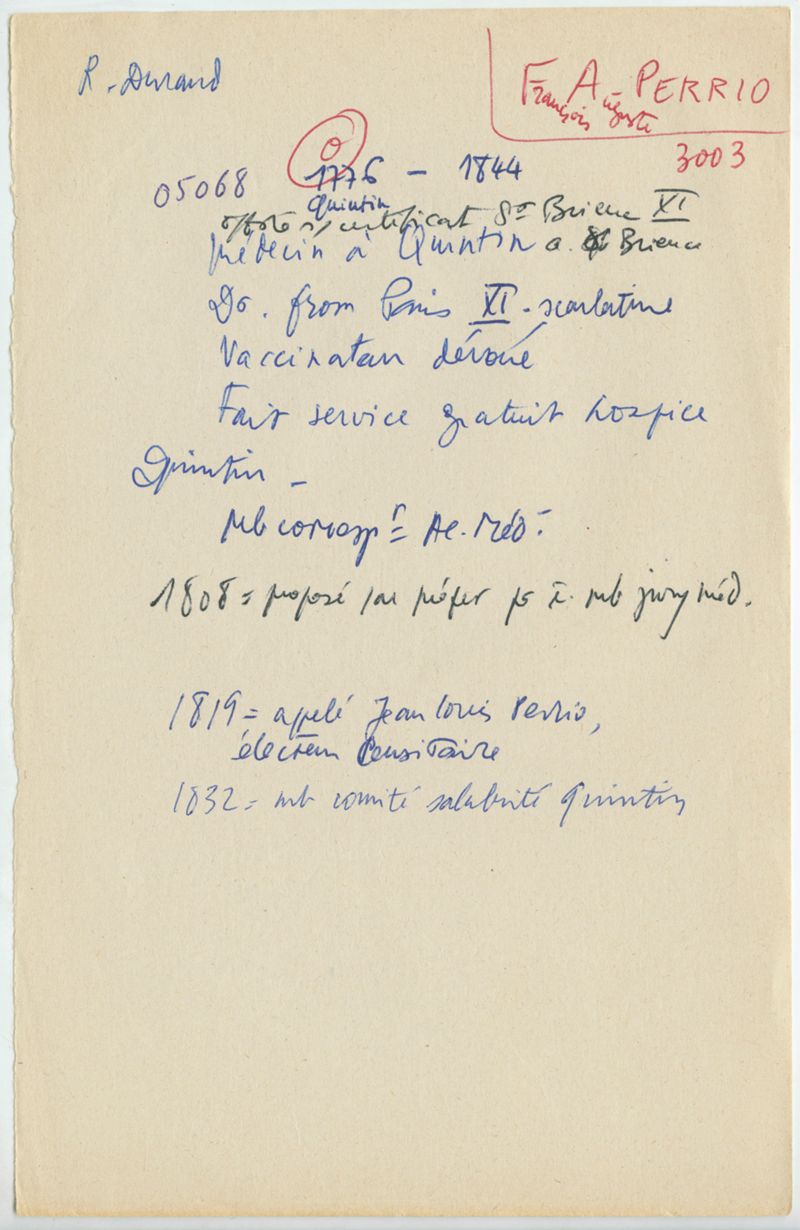 R. Durand
F. A. PERRIO
François Auguste
3003
0
05068 1776 - 1844
Quintin
certificat St Brieuc XI
Médecin à Quintin a. St Brieuc
Dr. from Paris XI - scarlatine
Vaccinateur dévoué
Fait service gratuit hospice
Quintin -
Mb corresp Ac. Méd.
1808 = proposé par préfet pr mb jury méd.
1819 = apelé Jean Louis Perrio,
électeur Censitaire
1832 = mb comité salubrité Quintin